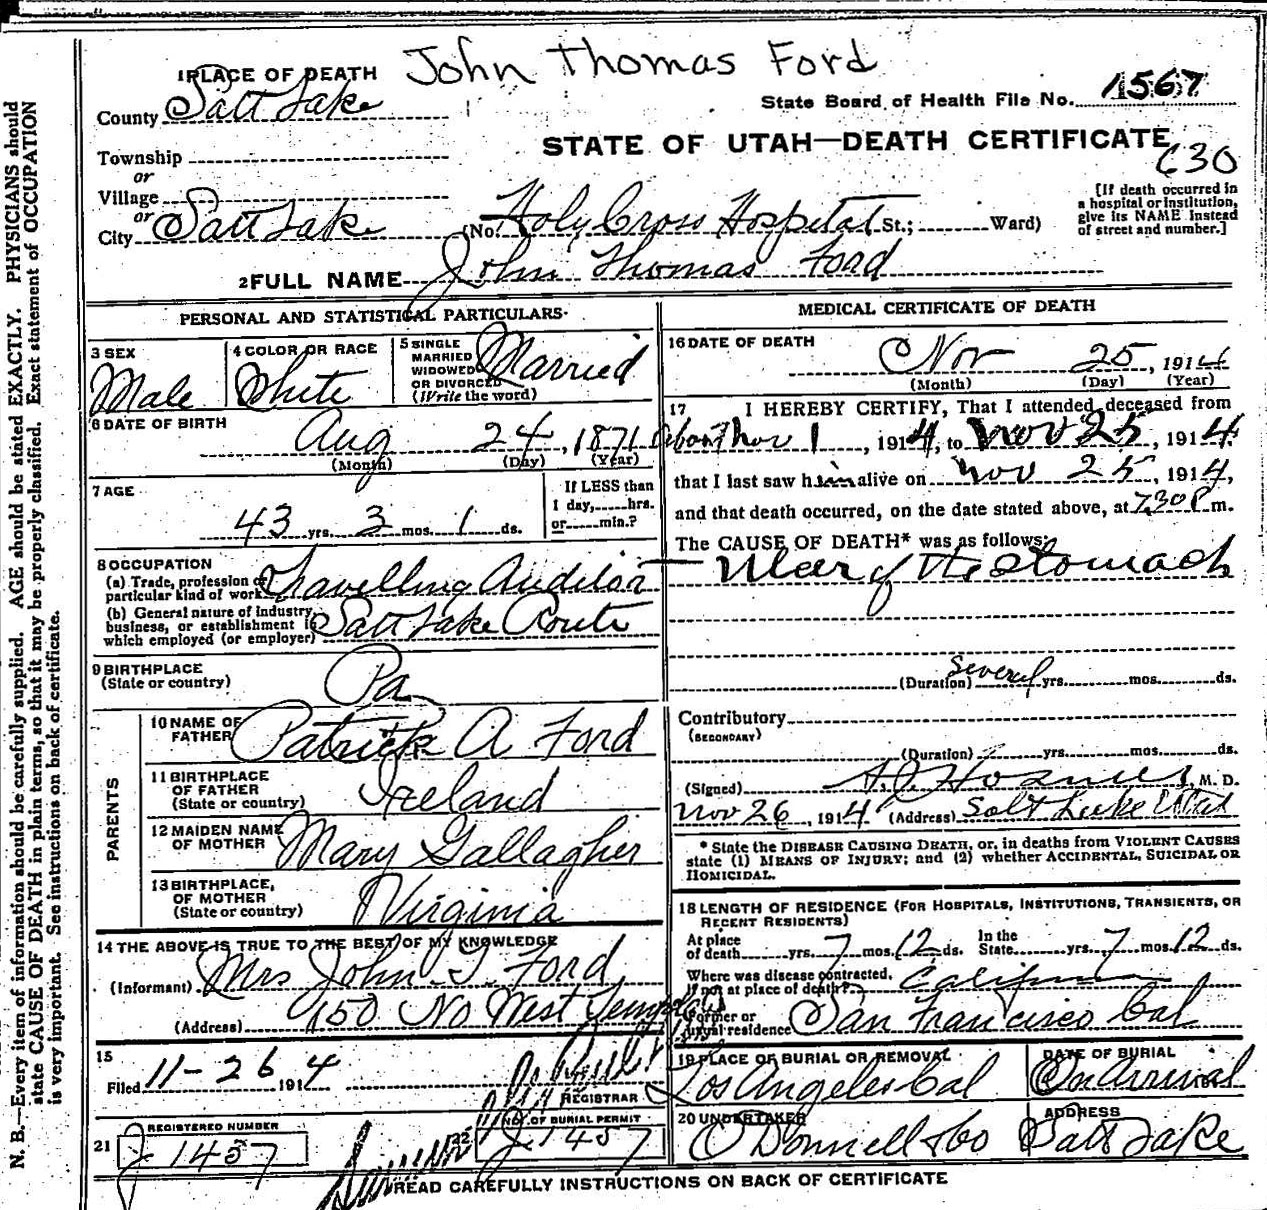 John Thomas Ford
1 PLACE OF DEATH
County Salt Lake
State Board of Health File No. 1567
STATE OF UTAH—DEATH CERTIFICATE
C30
Township
or
Village
or
City Salt Lake (No. Holy Cross Hospital St.; Ward)
[If death occurred in
a hospital or institution,
give its NAME instead
of street and number.]
2 FULL NAME John Thomas Ford
PERSONAL AND STATISTICAL PARTICULARS
3 SEX
Male
4 COLOR OR RACE
White
5 SINGLE
MARRIED
WIDOWED
OR DIVORCED
(Write the word)
Married
6 DATE OF BIRTH
Aug 24, 1871
(Month) (Day) (Year)
7 AGE
43 yrs. 3 mos. 1 ds.
If LESS than
1 day, hrs.
or min.?
8 OCCUPATION
(a) Trade, profession or
particular kind of work Travelling Auditor
(b) General nature of Industry,
business, or establishment in
which employed (or employer) Salt Lake Route
9 BIRTHPLACE
(State or country) Pa
PARENTS
10 NAME OF
FATHER Patrick A Ford
11 BIRTHPLACE
OF FATHER
(State or country) Ireland
12 MAIDEN NAME
OF MOTHER Mary Gallagher
13 BIRTHPLACE,
OF MOTHER
(State or country) Virginia
14 THE ABOVE IS TRUE TO THE BEST OF MY KNOWLEDGE
(Informant) Mrs John T. Ford
(Address) 150 No West Temple
15
Filed 11-26 1914
REGISTRAR
21 REGISTERED NUMBER
J 1457
22 NO. OF BURIAL PERMIT
J 1457
MEDICAL CERTIFICATE OF DEATH
16 DATE OF DEATH
Nov 25, 1914
(Month) (Day) (Year)
17 I HEREBY CERTIFY, That I attended deceased from
about Nov 1, 1914, to Nov 25, 1914
that I last saw him alive on Nov 25, 1914,
and that death occurred, on the date stated above, at 7.30 P m.
The CAUSE OF DEATH* was as follows:
Ulcer of the Stomach
(Duration) Several yrs. mos. ds.
Contributory
(SECONDARY)
(Duration) yrs. mos. ds.
(Signed) M. D.
Nov 26, 1914 (Address) Salt Lake Utah
* State the DISEASE CAUSING DEATH, or, in deaths from VIOLENT CAUSES
state (1) MEANS OF INJURY; and (2) whether ACCIDENTAL, SUICIDAL OR
HOMICIDAL.
18 LENGTH OF RESIDENCE (FOR HOSPITALS, INSTITUTIONS, TRANSIENTS, OR
RECENT RESIDENTS)
At place
of death yrs. 7 mos. 12 ds.
In the
State yrs. 7 mos. 12 ds.
Where was disease contracted,
If not at place of death? California
Former or
usual residence San Francisco Cal
19 PLACE OF BURIAL OR REMOVAL
Los Angeles Cal
DATE OF BURIAL
On Arrival
20 UNDERTAKER
O'Donnell & Co
ADDRESS
Salt Lake
READ CAREFULLY INSTRUCTIONS ON BACK OF CERTIFICATE
N. B.—Every item of information should be carefully supplied. AGE should be stated EXACTLY. PHYSICIANS should
state CAUSE OF DEATH in plain terms, so that it may be properly classified. Exact statement of OCCUPATION
is very important. See instructions on back of certificate.